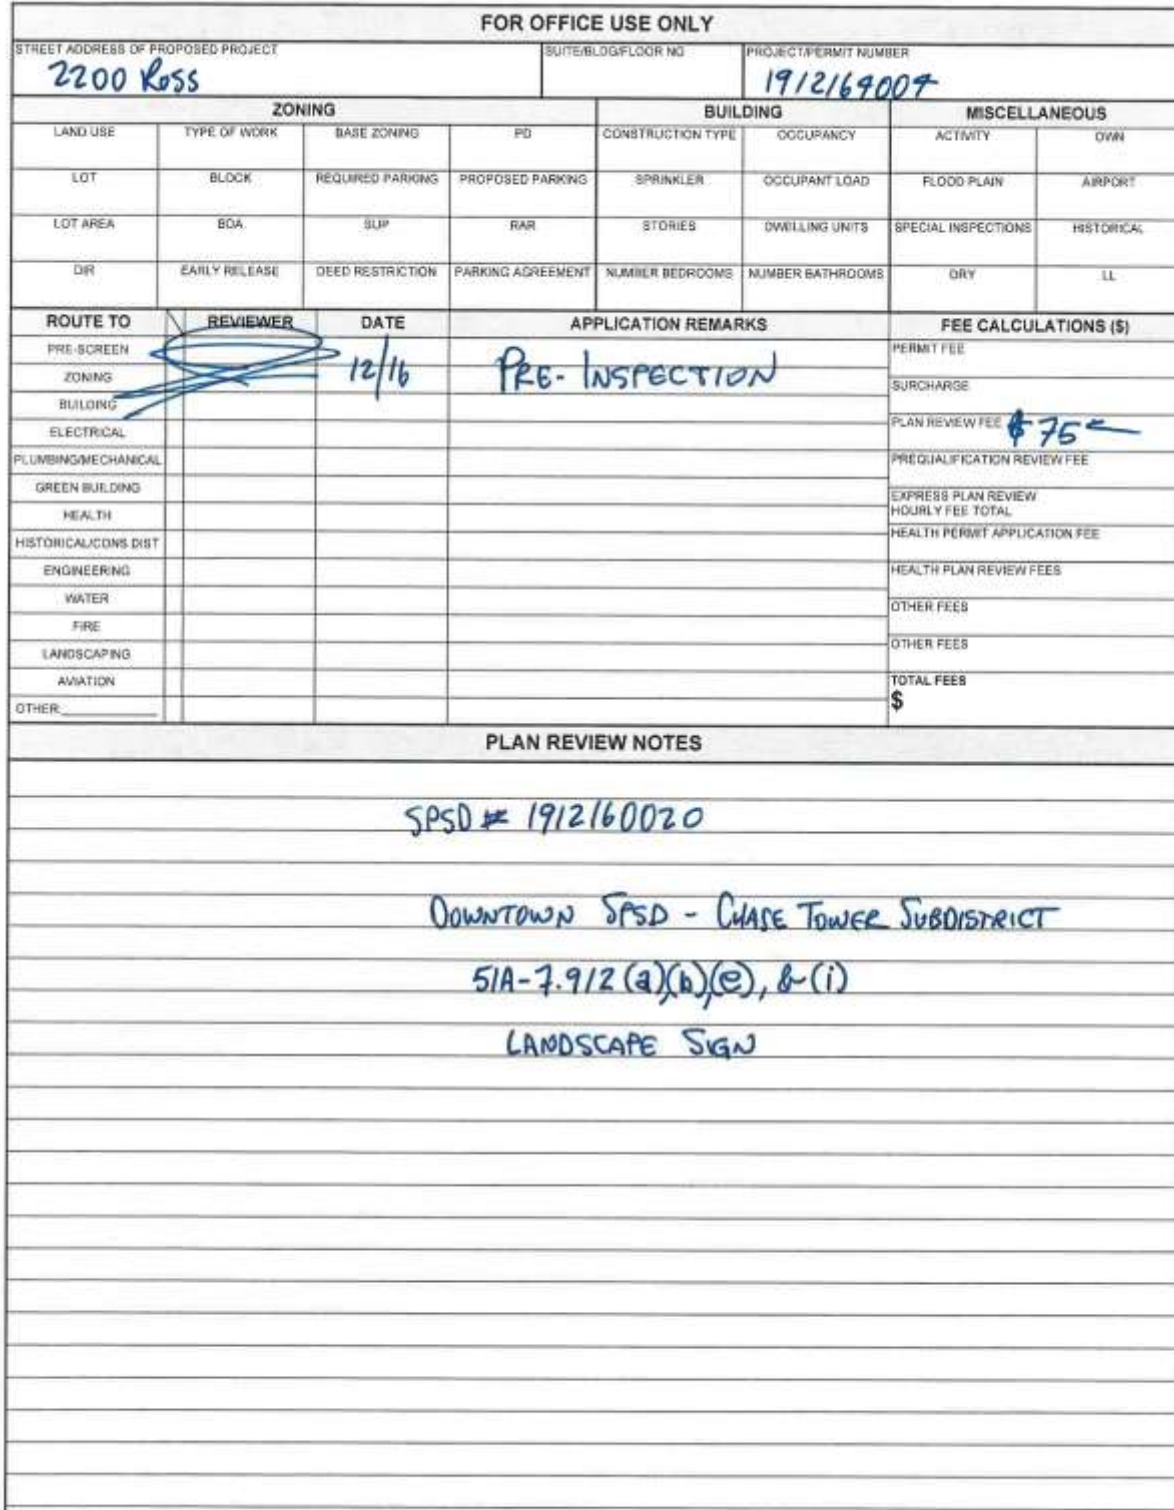 FOR OFFICE USE ONLY
STREET ADDRESS OF PROPOSED PROJECT SUITE/BLDG/FLOOR NO PROJECT/PERMIT NUMBER
2200 Ross 1912169004
ZONING BUILDING MISCELLANEOUS
LAND USE TYPE OF WORK BASE ZONING PD CONSTRUCTION TYPE OCCUPANCY ACTIVITY OWN
LOT BLOCK REQUIRED PARKING PROPOSED PARKING SPRINKLER OCCUPANT LOAD FLOOD PLAIN AIRPORT
LOT AREA BDA SUP RAR STORIES DWELLING UNITS SPECIAL INSPECTIONS HISTORICAL
DIR EARLY RELEASE DEED RESTRICTION PARKING AGREEMENT NUMBER BEDROOMS NUMBER BATHROOMS DRY LL
ROUTE TO REVIEWER DATE APPLICATION REMARKS FEE CALCULATIONS ($)
PRE-SCREEN PERMIT FEE
ZONING 12/16 PRE-INSPECTION
SURCHARGE
BUILDING
PLAN REVIEW FEE $75
ELECTRICAL
PLUMBING/MECHANICAL PREQUALIFICATION REVIEW FEE
GREEN BUILDING
EXPRESS PLAN REVIEW
HOURLY FEE TOTAL
HEALTH
HEALTH PERMIT APPLICATION FEE
HISTORICAL/CONS DIST
ENGINEERING HEALTH PLAN REVIEW FEES
WATER
OTHER FEES
FIRE
OTHER FEES
LANDSCAPING
AVIATION TOTAL FEES
OTHER: $
PLAN REVIEW NOTES
SPSD # 1912160020
DOWNTOWN SPSD - CHASE TOWER SUBDISTRICT
51A-7.912 (a)(b)(e), & (i)
LANDSCAPE SIGN